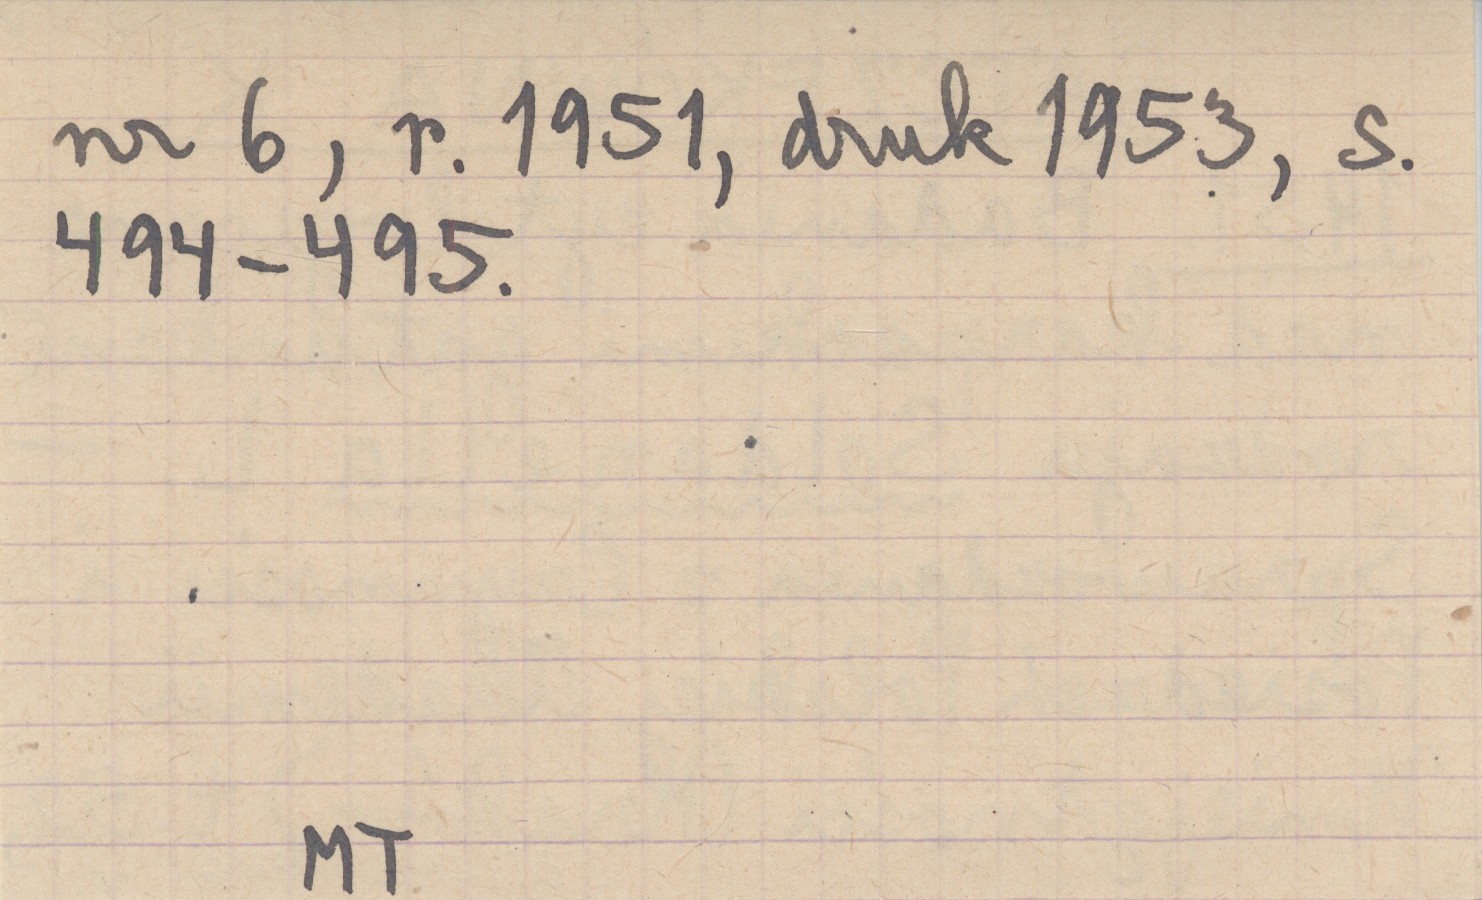 nr 6, r. 1951, druk 1953, s.
494-495.
MT